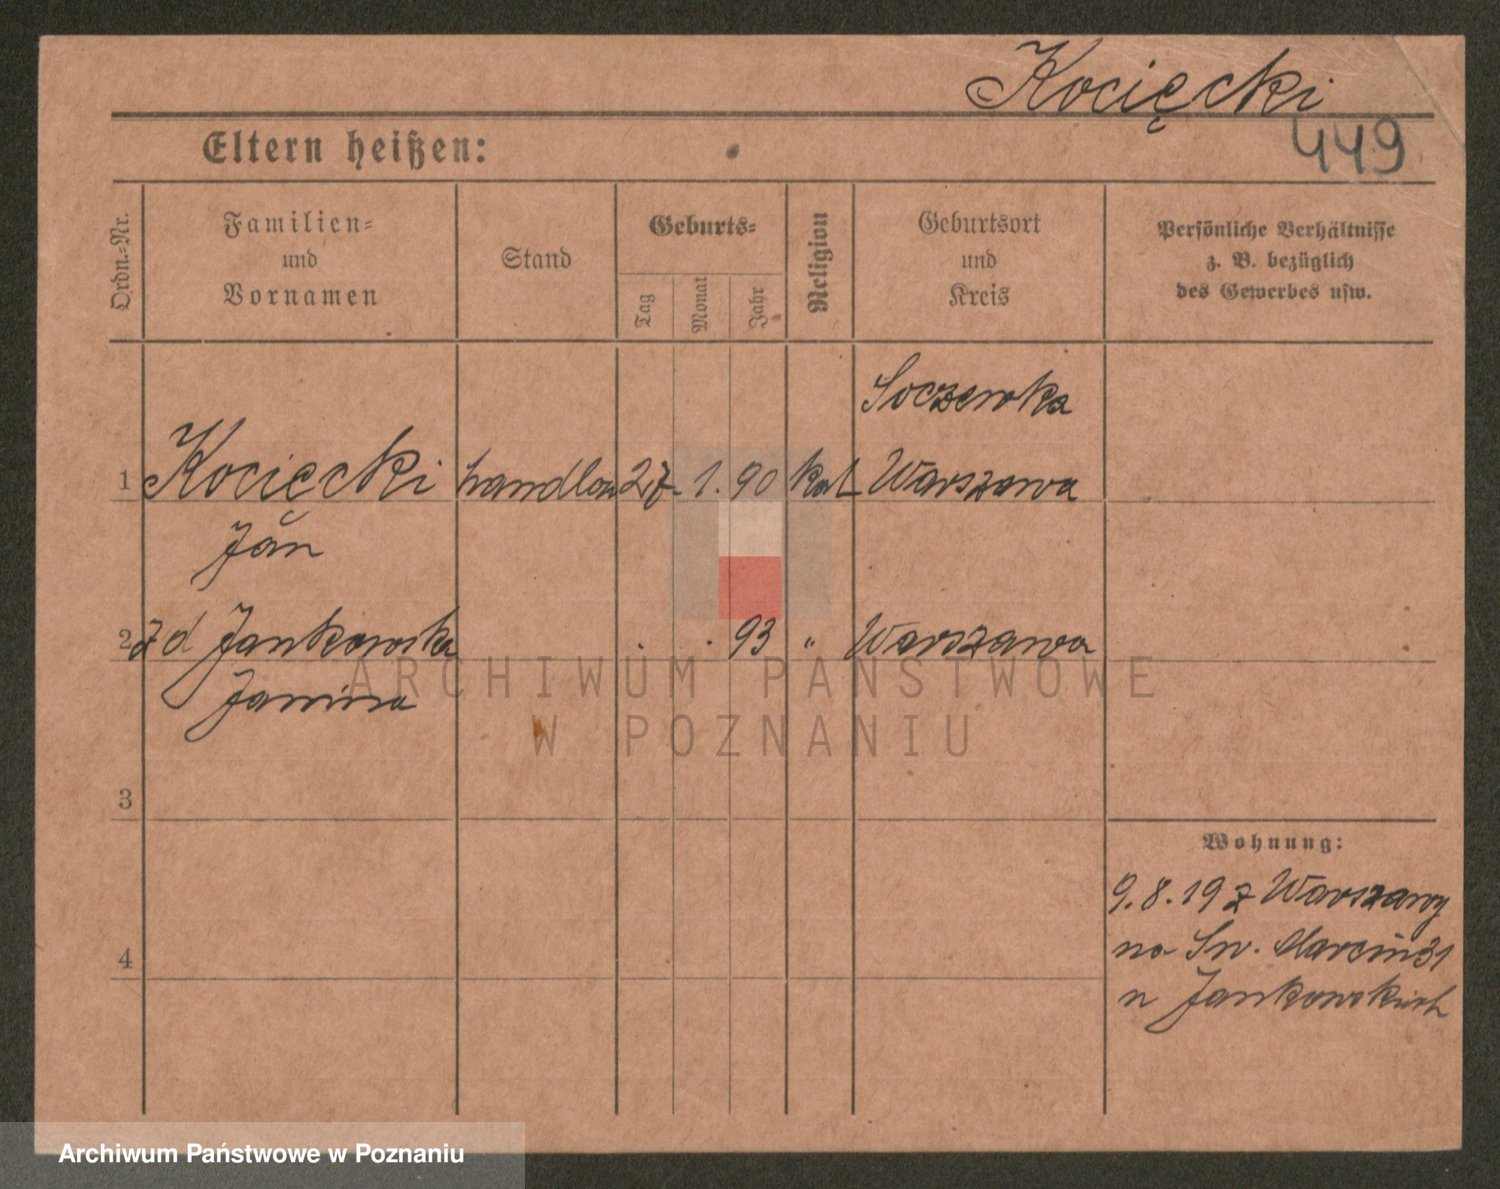 Kocięcki
449
Eltern heißen:
Ordn.-Nr.
Familien-
und
Vornamen
Stand
Geburts-
Tag
Monat
Jahr
Religion
Geburtsort
und
Kreis
Persönliche Verhältnisse
z. B. bezüglich
des Gewerbes usw.
Soczewka
1 Kocięcki 27. 1. 90 kat Warszawa
Jan
2 z d Jankowska . . 93 " Warszawa
Janina
ARCHIWUM PAŃSTWOWE
W POZNANIU
3
Wohnung:
9.8.19 z Warszawy
na Św. Marcin 31
u Jankowskich
4
Archiwum Państwowe w Poznaniu